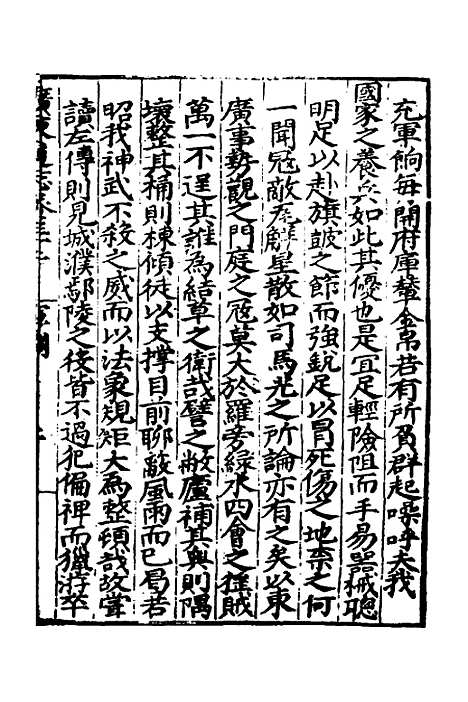 充軍餉每開府庫輦金帛若有所負群起噪呼夫我
國家之養兵如此其優也是宜足輕險阻而手易器械聰
明足以赴旗鼓之節而強銳足以冒死傷之地柰之何
一聞冦敵鹿觧星散如司馬光之所論亦有之矣以東
廣事勢觀之門庭之冦莫大於羅旁綠水四會之猺賊
萬一不逞其誰為結草之衛哉譬之敝廬補其奥則隅
壞整其桷則棟傾徒以支撐目前聊蔽風雨而已曷若
昭我神武不殺之威而以法家規矩大為整頓哉故嘗
讀左傳則見城濮鄢陵之後皆不過犯偏裨而獵㳺卒
廣東通志卷三十